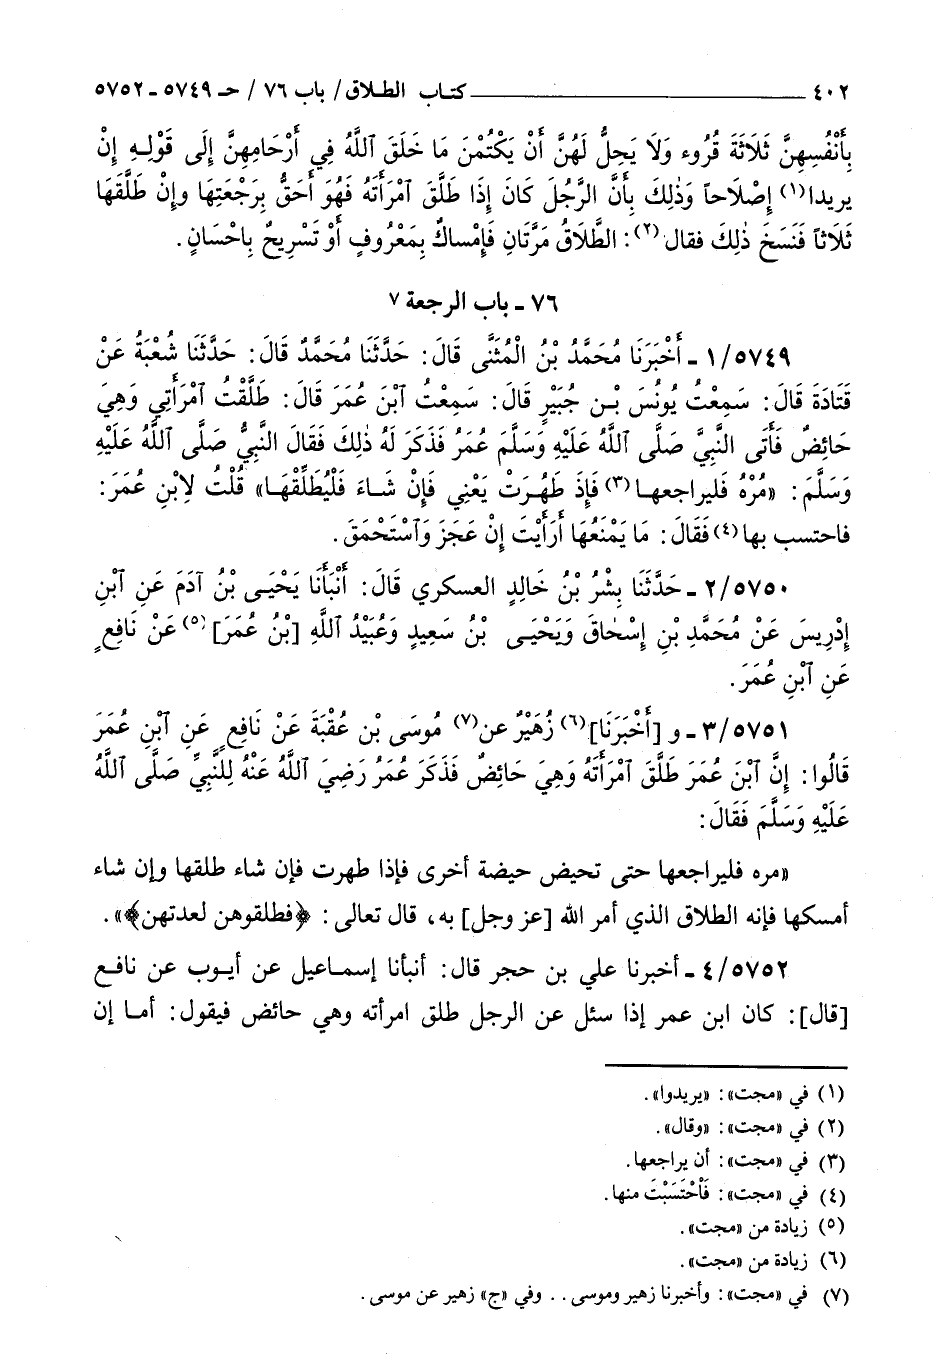 ٤٠٢ ـــــ كتاب الطلاق/ باب ٧٦ / حـ ٥٧٤٩ ـ ٥٧٥٢
بِأَنْفُسِهِنَّ ثَلَاثَةَ قُرُوء وَلَا يَحِلُّ لَهُنَّ أَنْ يَكْتُمْنَ مَا خَلَقَ ٱللَّهُ فِي أَرْحَامِهِنَّ إِلَى قَوْلِهِ إِنْ
يريدا(١) إِصْلَاحاً وَذٰلِكَ بِأَنَّ الرَّجُلَ كَانَ إِذَا طَلَّقَ ٱمْرَأَتَهُ فَهُوَ أَحَقُّ بِرَجْعَتِهَا وإِنْ طَلَّقَهَا
ثَلَاثاً فَنَسَخَ ذٰلِكَ فقال(٢): الطَّلَاقُ مَرَّتَانِ فَإِمْساكٌ بِمَعْرُوفٍ أَوْ تَسْرِيحٌ بِاحْسَانٍ.
٧٦ ـ باب الرجعة ٧
١/٥٧٤٩ ـ أَخْبَرَنَا مُحَمَّدُ بْنُ الْمُثَنَّى قَالَ: حَدَّثَنَا مُحَمَّدٌ قَالَ: حَدَّثَنَا شُعْبَةُ عَنْ
قَتَادَةَ قَالَ: سَمِعْتُ يُونُسَ بْـنِ جُبَيْرٍ قَالَ: سَمِعْتُ ٱبْنَ عُمَرَ قَالَ: طَلَّقْتُ ٱمْرَأَتِي وَهِيَ
حَائِضٌ فَأَتَى النَّبِيَّ صَلَّى ٱللَّهُ عَلَيْهِ وَسَلَّمَ عُمَرُ فَذَكَرَ لَهُ ذٰلِكَ فَقَالَ النَّبِيُّ صَلَّى ٱللَّهُ عَلَيْهِ
وَسَلَّمَ: «مُرْهُ فَليراجعهـا(٣) فَإِذَ طَهُـرَتْ يَعْنِي فَإِنْ شَـاءَ فَلْيُطَلِّقْهَـا» قُلْتُ لاِبْنِ عُمَرَ:
فاحتسب بها(٤) فَقَالَ: مَا يَمْنَعُهَا أَرَأَيْتَ إِنْ عَجَزَ وَٱسْتَحْمَقَ.
٢/٥٧٥٠ ـ حَدَّثَنَا بِشْرُ بْنُ خَالِدٍ العسكري قَالَ: أَنْبَأَنَا يَحْيَـى بْنُ آدَمَ عَنِ ٱبْنِ
إِدْرِيسَ عَنْ مُحَمَّدِ بْنِ إِسْحَاقَ وَيَحْيَـى بْنُ سَعِيدٍ وَعُبَيْدُ ٱللَّهِ [بْنُ عُمَرَ](٥) عَنْ نَافِعٍ
عَنِ ٱبْنِ عُمَرَ.
٣/٥٧٥١ ـ و [أَخْبَرَنَا](٦) زُهَيْرٌ عن(٧) مُوسَى بْنِ عُقْبَةَ عَنْ نَافِعٍ عَنِ ٱبْنِ عُمَرَ
قَالُوا: إِنَّ ٱبْنَ عُمَرَ طَلَّقَ ٱمْرَأَتَهُ وَهِيَ حَائِضٌ فَذَكَرَ عُمَرُ رَضِيَ ٱللَّهُ عَنْهُ لِلنَّبِيِّ صَلَّى ٱللَّهُ
عَلَيْهِ وَسَلَّمَ فَقَالَ:
«مره فليراجعها حتى تحيض حيضة أخرى فإذا طهرت فإن شاء طلقها وإن شاء
أمسكها فإنه الطلاق الذي أمر الله [عز وجل] به، قال تعالى: ﴿فطلقوهن لعدتهن﴾».
٤/٥٧٥٢ ـ أخبرنا علي بن حجر قال: أنبأنا إسماعيل عن أيوب عن نافع
[قال]: كان ابن عمر إذا سئل عن الرجل طلق امرأته وهي حائض فيقول: أما إن
(١) في «مجت»: «يريدوا».
(٢) في «مجت»: «وقال».
(٣) في «مجت»: أن يراجعها.
(٤) في «مجت»: فَاْحْتَسَبْتَ منها.
(٥) زيادة من «مجت».
(٦) زيادة من «مجت».
(٧) في «مجت»: وأخبرنا زهير وموسى.. وفي «ج» زهير عن موسى.